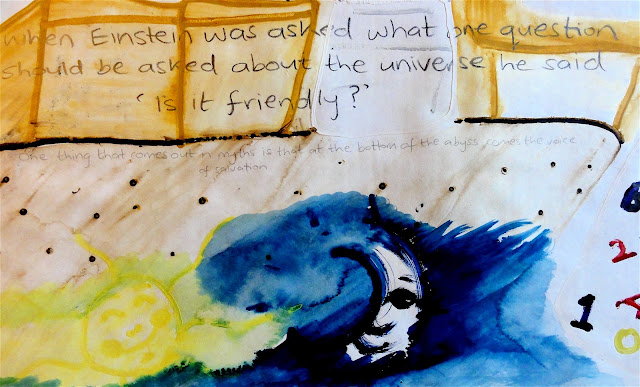 when Einstein was asked what one question
should be asked about the universe he said
'Is it friendly?'
One thing that comes out in myths is that at the bottom of the abyss comes the voice
of salvation
2
1
0